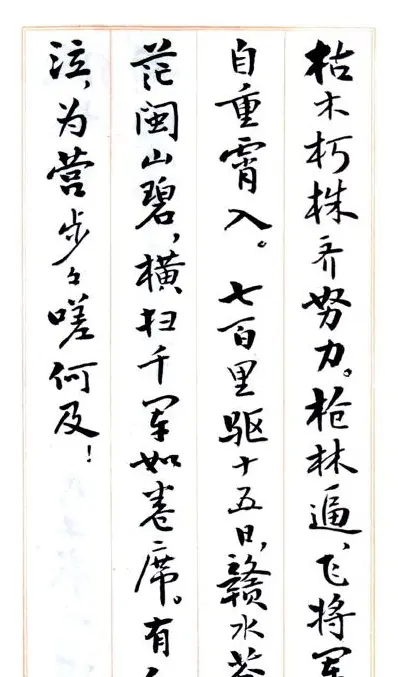 枯木朽株齐努力。枪林逼、飞将军
自重霄入。七百里驱十五日,赣水苍
茫闽山碧,横扫千军如卷席。有人
泣,为营步々嗟何及!